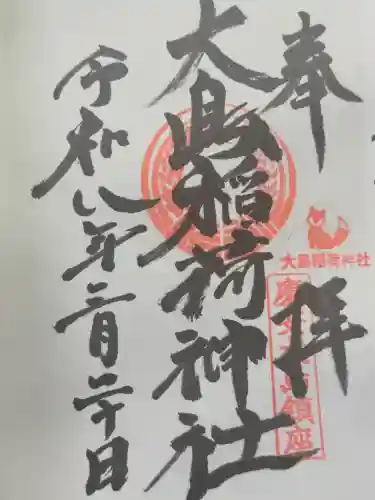 奉拝
大島稲荷神社
大島稲荷神社
慶安二年鎮座
令和八年三月二十日